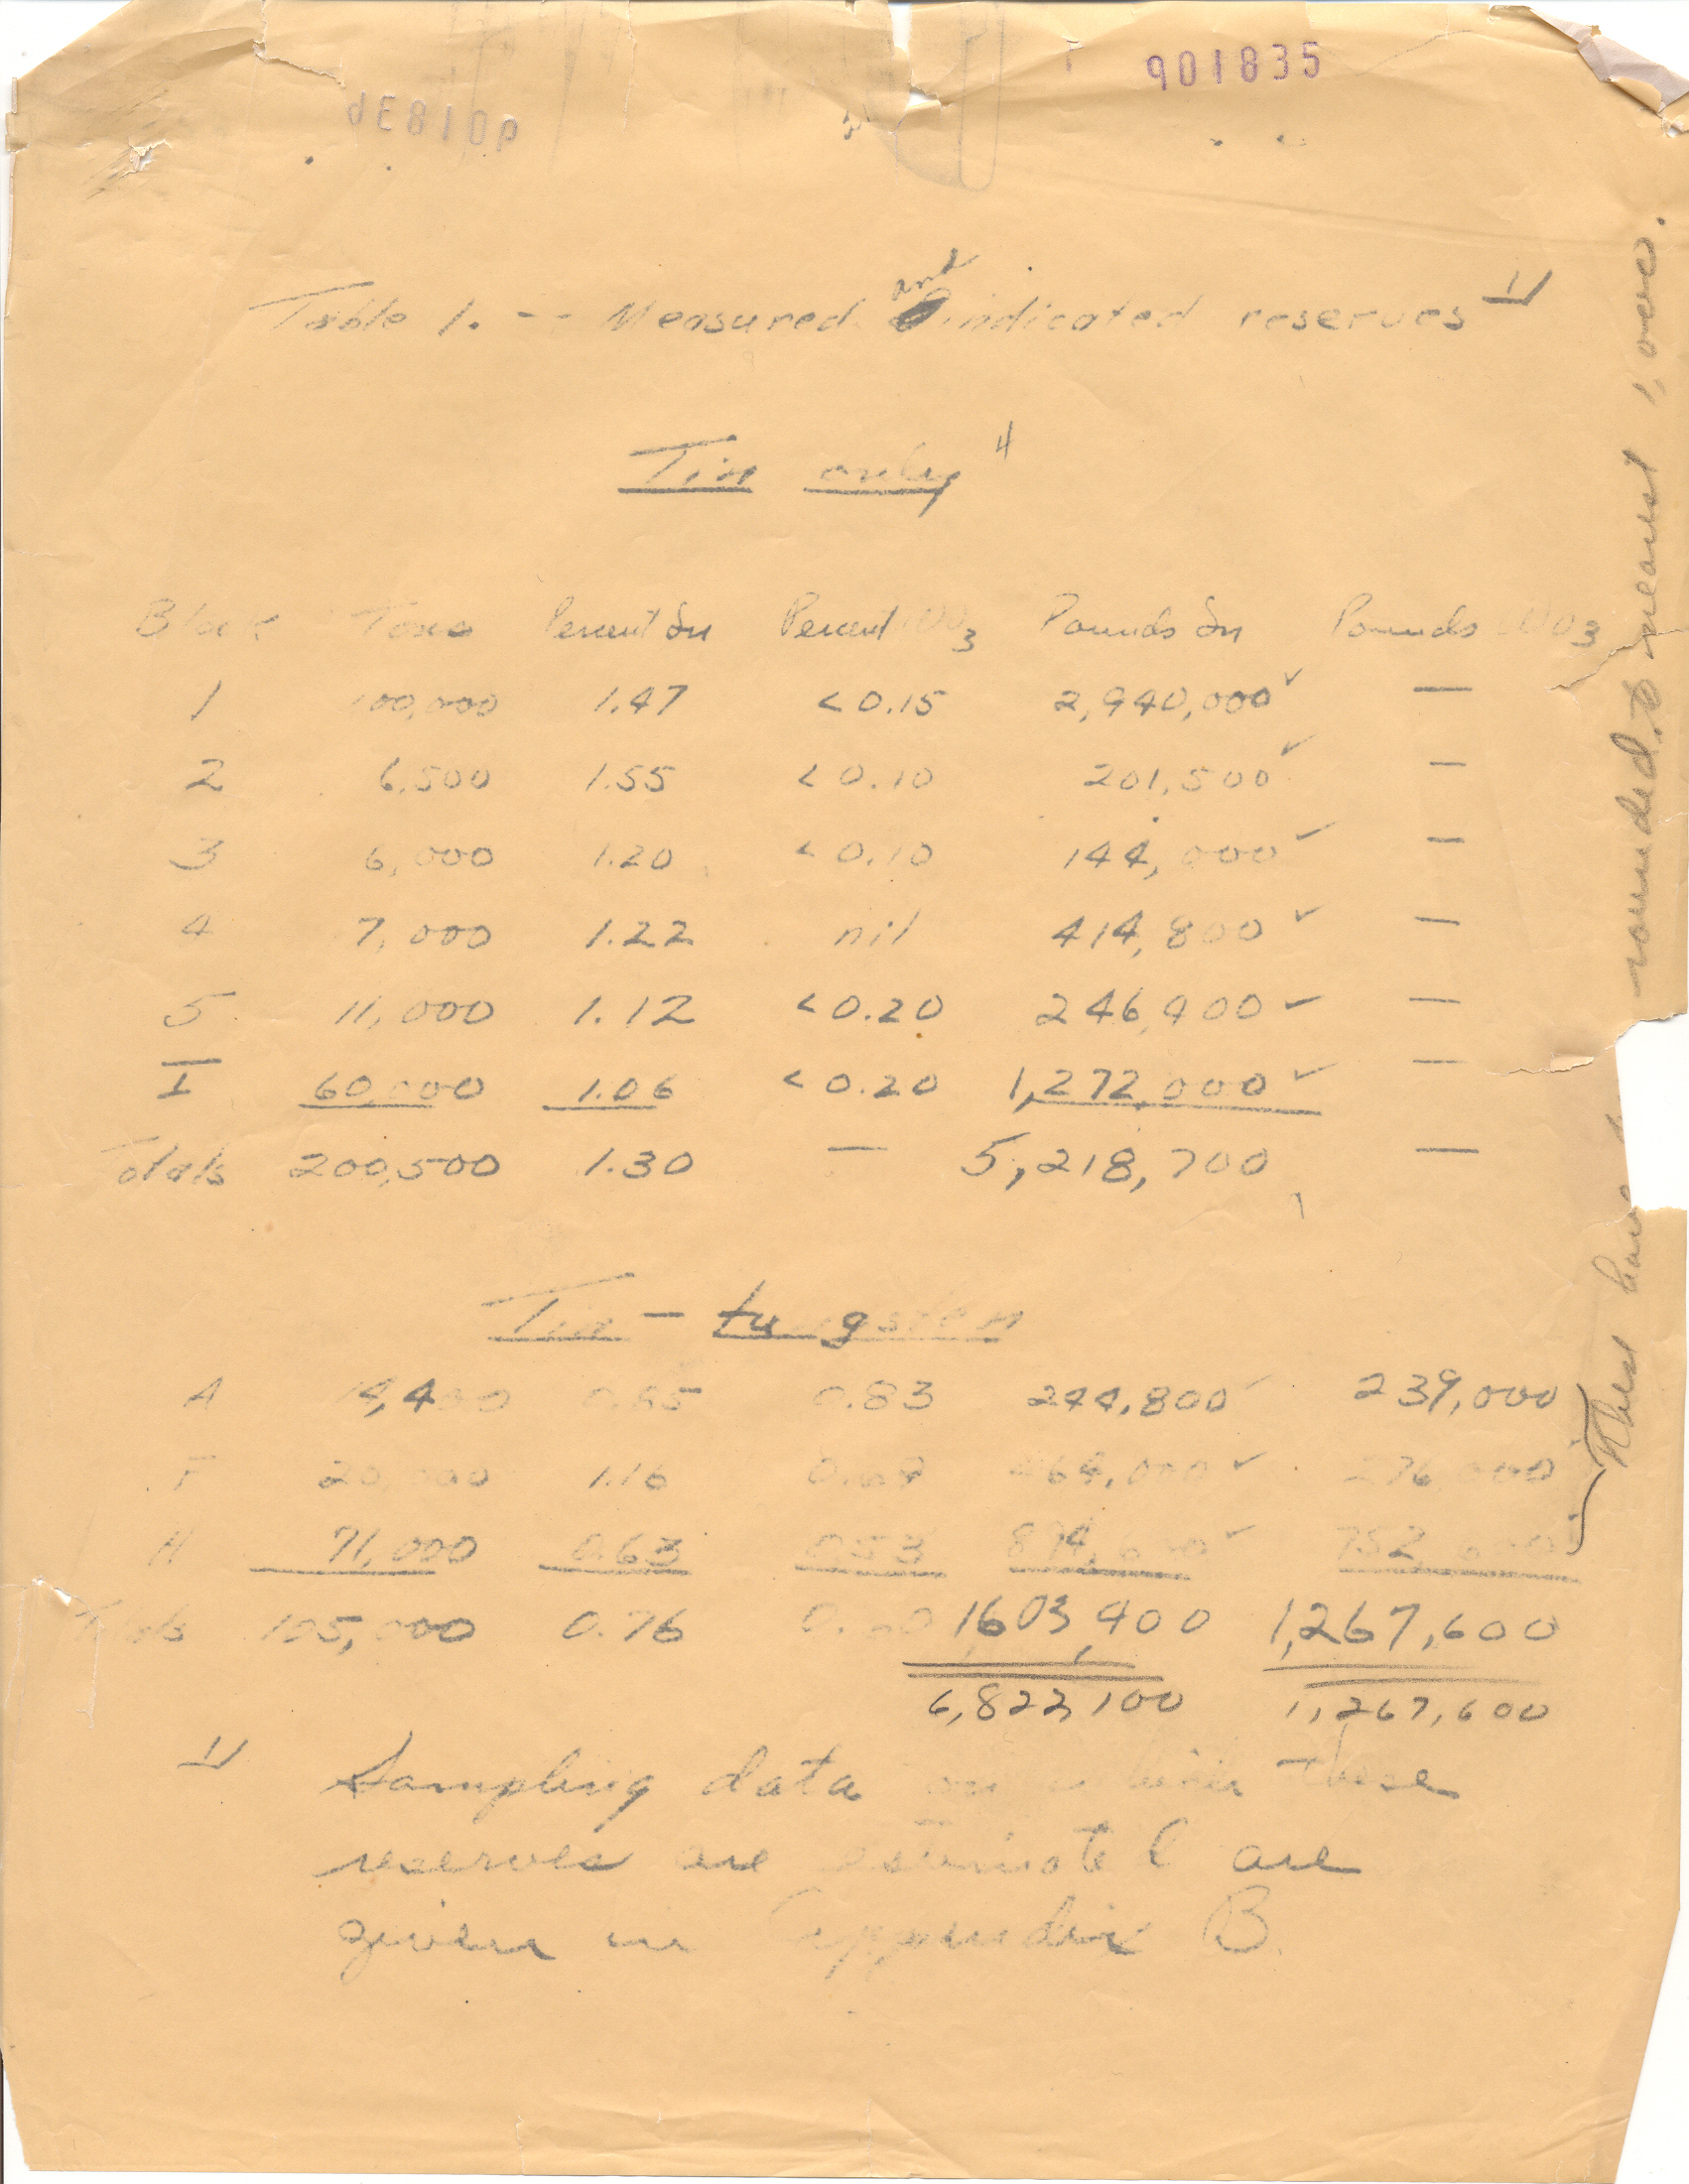 901835
Table 1. -- Measured and indicated reserves 1/
Tin only 4
Block Tons Percent Sn Percent WO3 Pounds Sn Pounds WO3
1 100,000 1.47 <0.15 2,940,000 ✓ —
2 6,500 1.55 <0.10 201,500 ✓ —
3 6,000 1.20 <0.10 144,000 ✓ —
4 7,000 1.22 nil 414,800 ✓ —
5 11,000 1.12 <0.20 246,400 ✓ —
I 60,000 1.06 <0.20 1,272,000 ✓ —
Totals 200,500 1.30 — 5,218,700 —
Tin - tungsten
A 14,400 0.85 0.83 244,800 ✓ 239,000
F 20,000 1.16 464,000 ✓ 276,000
H 71,000 0.63 0.53 894,600 ✓ 752,600
Totals 105,000 0.76 1,603,400 1,267,600
6,822,100 1,267,600
1/ Sampling data on which these
reserves are estimated are
given in Appendix B.
These have rounded to nearest 1,000.